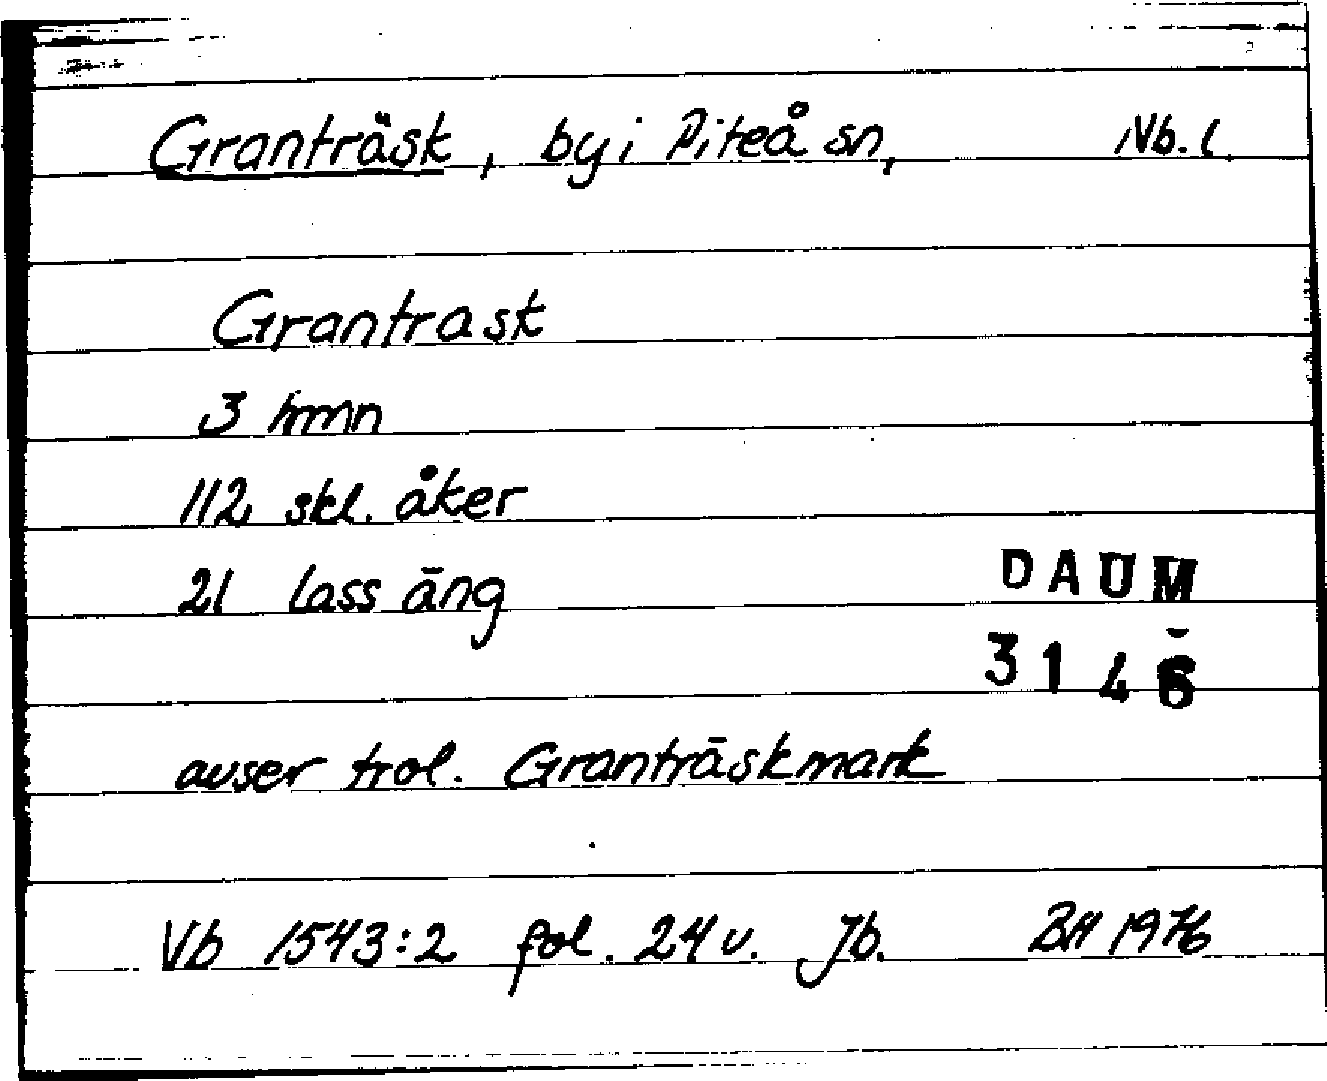 Granträsk, by i Piteå sn, Nb. l.
Grantrask
3 hmn
112 skl. åker
21 lass äng
DAUM
3146
avser trol. Granträskmark
Vb 1543:2 fol. 24 v. Jb. BH 1976